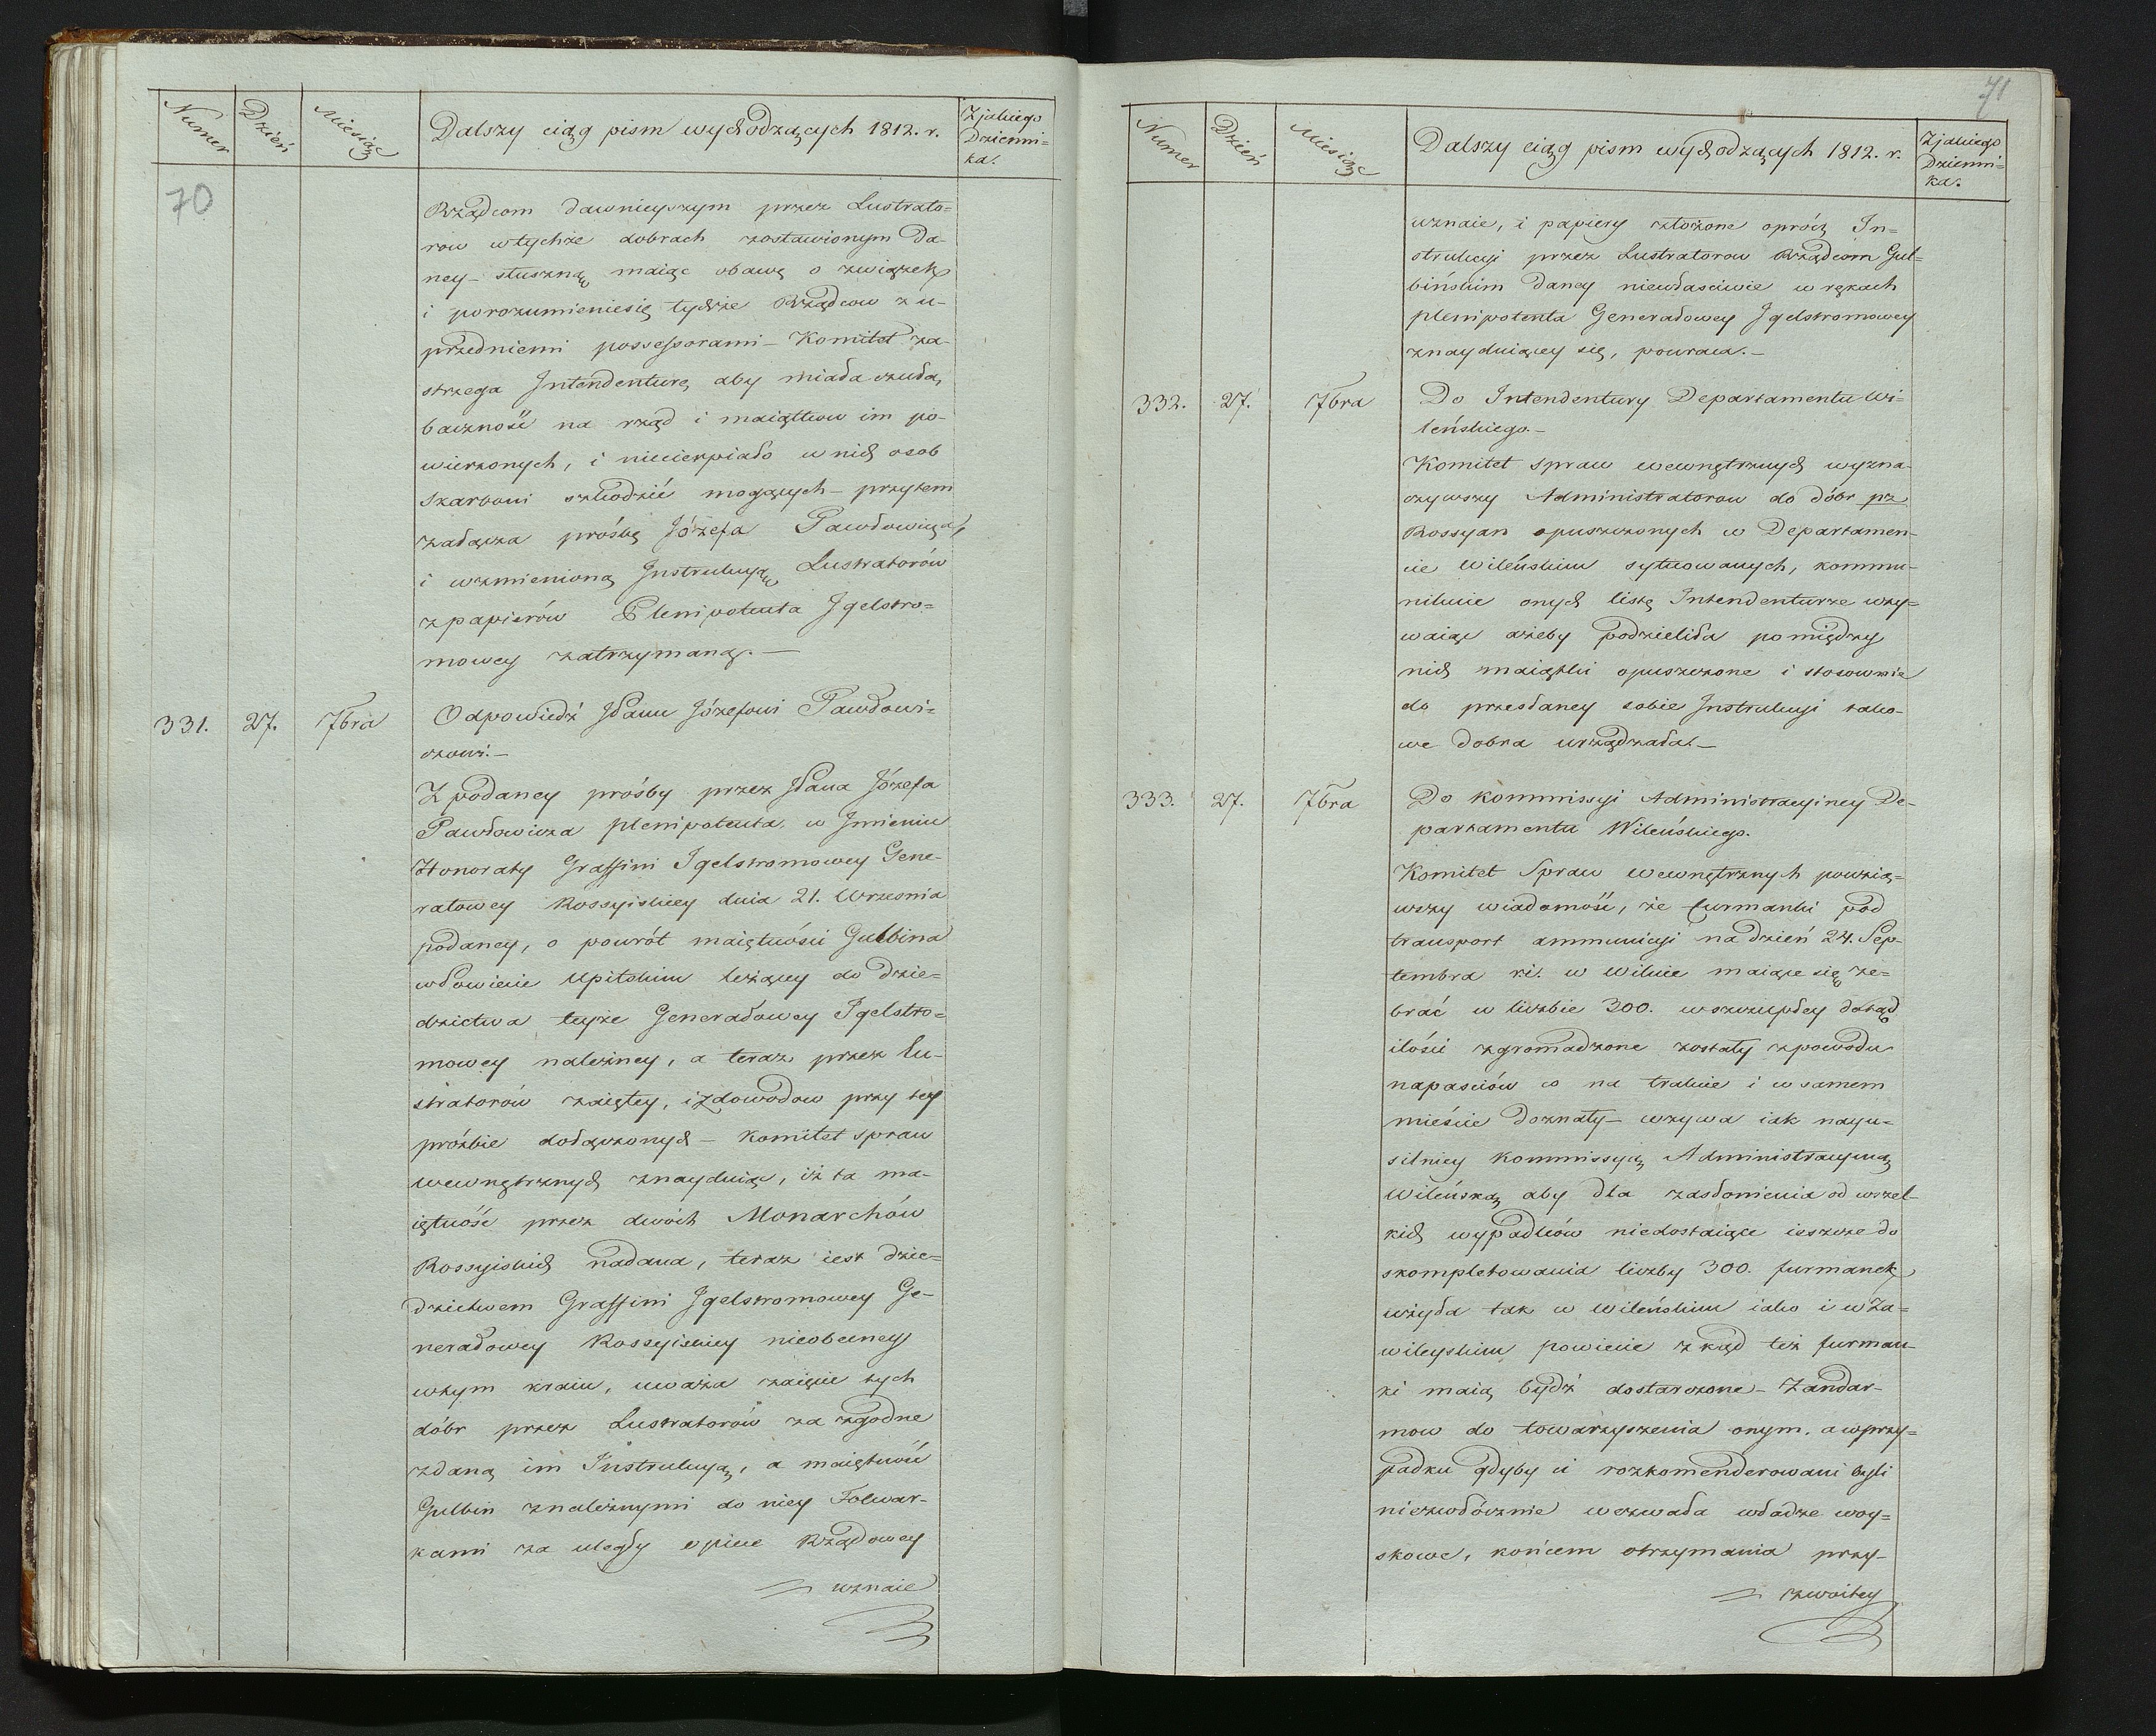 Numer Dzień Miesiąc Dalszy ciąg pism wychodzących 1812. r. Z jakiego
Dzienni=
ka.
70
Rządcom dawnieyszym przez Lustrato=
row w tychże dobrach zostawionym da-
ney - słuszną maiąc obawę o związek
i porozumieniesię tychże Rządcow z u-
przedniemi possessorami - Komitet za-
strzega Intendenturę aby miała czułą
baczność na rząd i maiątkow im po-
wierzonych, i niecierpiało w nich osob
Skarbowi szkodzić mogących - przytem
załącza prośbę Józefa Pawłowicza,
i wzmienioną Instrukcyą Lustratorów
z papierów Plenipotenta Jgelstro=
mowey zatrzymaną. -
331. 27. 7bra Odpowiedź JPanu Józefowi Pawłowi=
czowi. -
Z podaney prośby przez JPana Józefa
Pawłowicza plenipotenta w Jmieniu
Honoraty Graffini Jgelstromowey Gene-
rałowey Rossyiskiey dnia 21. Września
podaney, o powrót maiętności Gulbina
w Powiecie Upitskim leżącey do dzie=
dzictwa teyże Generałowey Jgelstro=
mowey należney, a teraz przez Lu-
stratorów zaiętey, i z dowodow przy tey
prózbie dołączonych - Komitet spraw
wewnętrznych znayduiąc, iż ta ma-
iętność przez dwóch Monarchów
Rossyiskich nadana, teraz iest dzie=
dzictwem Graffini Jgelstromowey Ge-
nerałowey Rossyiskiey nieobecney
w tym kraiu, uważa zaięcie tych
dóbr przez Lustratorów za zgodne
z daną im Instrukcyą, a maiętność
Gulbin z należnymi do niey Folwar-
kami za uległy opiece Rządowey
uznaie
71
Numer Dzień Miesiąc Dalszy ciąg pism wychodzących 1812. r. Z jakiego
Dzienni=
ka.
uznaie, i papiery złożone oprócz In=
strukcyi przez Lustratorow Rządcom Gul=
bińskim daney niewłaściwie w rękach
plenipotenta Generałowey Jgelstromowey
znayduiącey się, powraca. -
332. 27. 7bra Do Intendentury Departamentu Wi-
leńskiego. -
Komitet spraw wewnętrznych wyzna-
czywszy Administratorow do dóbr pz
Rossyan opuszczonych w Departamen-
cie Wileńskim sytuowanych, kommu-
nikuie onych listę Intendenturze wzy=
waiąc ażeby podzieliła pomiędzy
nich maiątki opuszczone i stosownie
do przesłaney sobie Instrukcyi tako-
we dobra urządzała. -
333. 27. 7bra Do Kommissyi Administracyiney De-
partamentu Wileńskiego.
Komitet Spraw wewnętrznych powzią=
wszy wiadomość, że furmanki pod
transport ammunicyi na dzień 24. Sep-
tembra r.i. w Wilnie maiące się ze=
brać w liczbie 300. w szczupłey dotąd
ilości zgromadzone zostały z powodu
napaściów co na trakcie i w samem
mieście doznały - wzywa iak nayu=
silniey Kommissyą Administracyiną
Wileńską aby dla zasłonienia od wszel-
kich wypadków niedostaiące ieszcze do
skompletowania liczby 300. furmanek
użyła tak w Wileńskim iako i w Za=
wileyskim powiecie z kąd też furman-
ki maią bydź dostarczone - Zandar-
mow do towarzyszenia onym. a w przy=
padku gdyby ci rozkomenderowani byli
niezwłócznie wezwała władze woy=
skowe, końcem otrzymania przy-
zwoitey